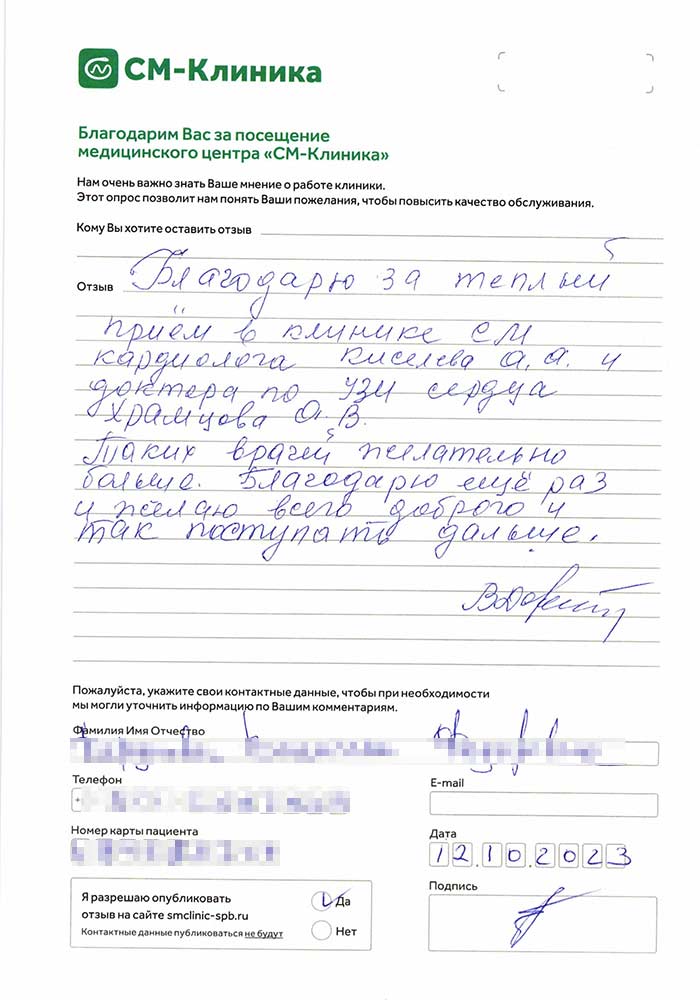 СМ-Клиника
Благодарим Вас за посещение
медицинского центра «СМ-Клиника»
Нам очень важно знать Ваше мнение о работе клиники.
Этот опрос позволит нам понять Ваши пожелания, чтобы повысить качество обслуживания.
Кому Вы хотите оставить отзыв
Отзыв Благодарю за теплый
приём в клинике СМ
кардиолога Киселева А.А. и
доктера по УЗИ сердца
Храмцова О.В.
Таких врачей желательно
больше. Благодарю ещё раз
и желаю всего доброго и
так поступать дальше.
Пожалуйста, укажите свои контактные данные, чтобы при необходимости
мы могли уточнить информацию по Вашим комментариям.
Фамилия Имя Отчество
Телефон
E-mail
Номер карты пациента
Дата
12.10.2023
Я разрешаю опубликовать
отзыв на сайте smclinic-spb.ru
Контактные данные публиковаться не будут
Да
Нет
Подпись